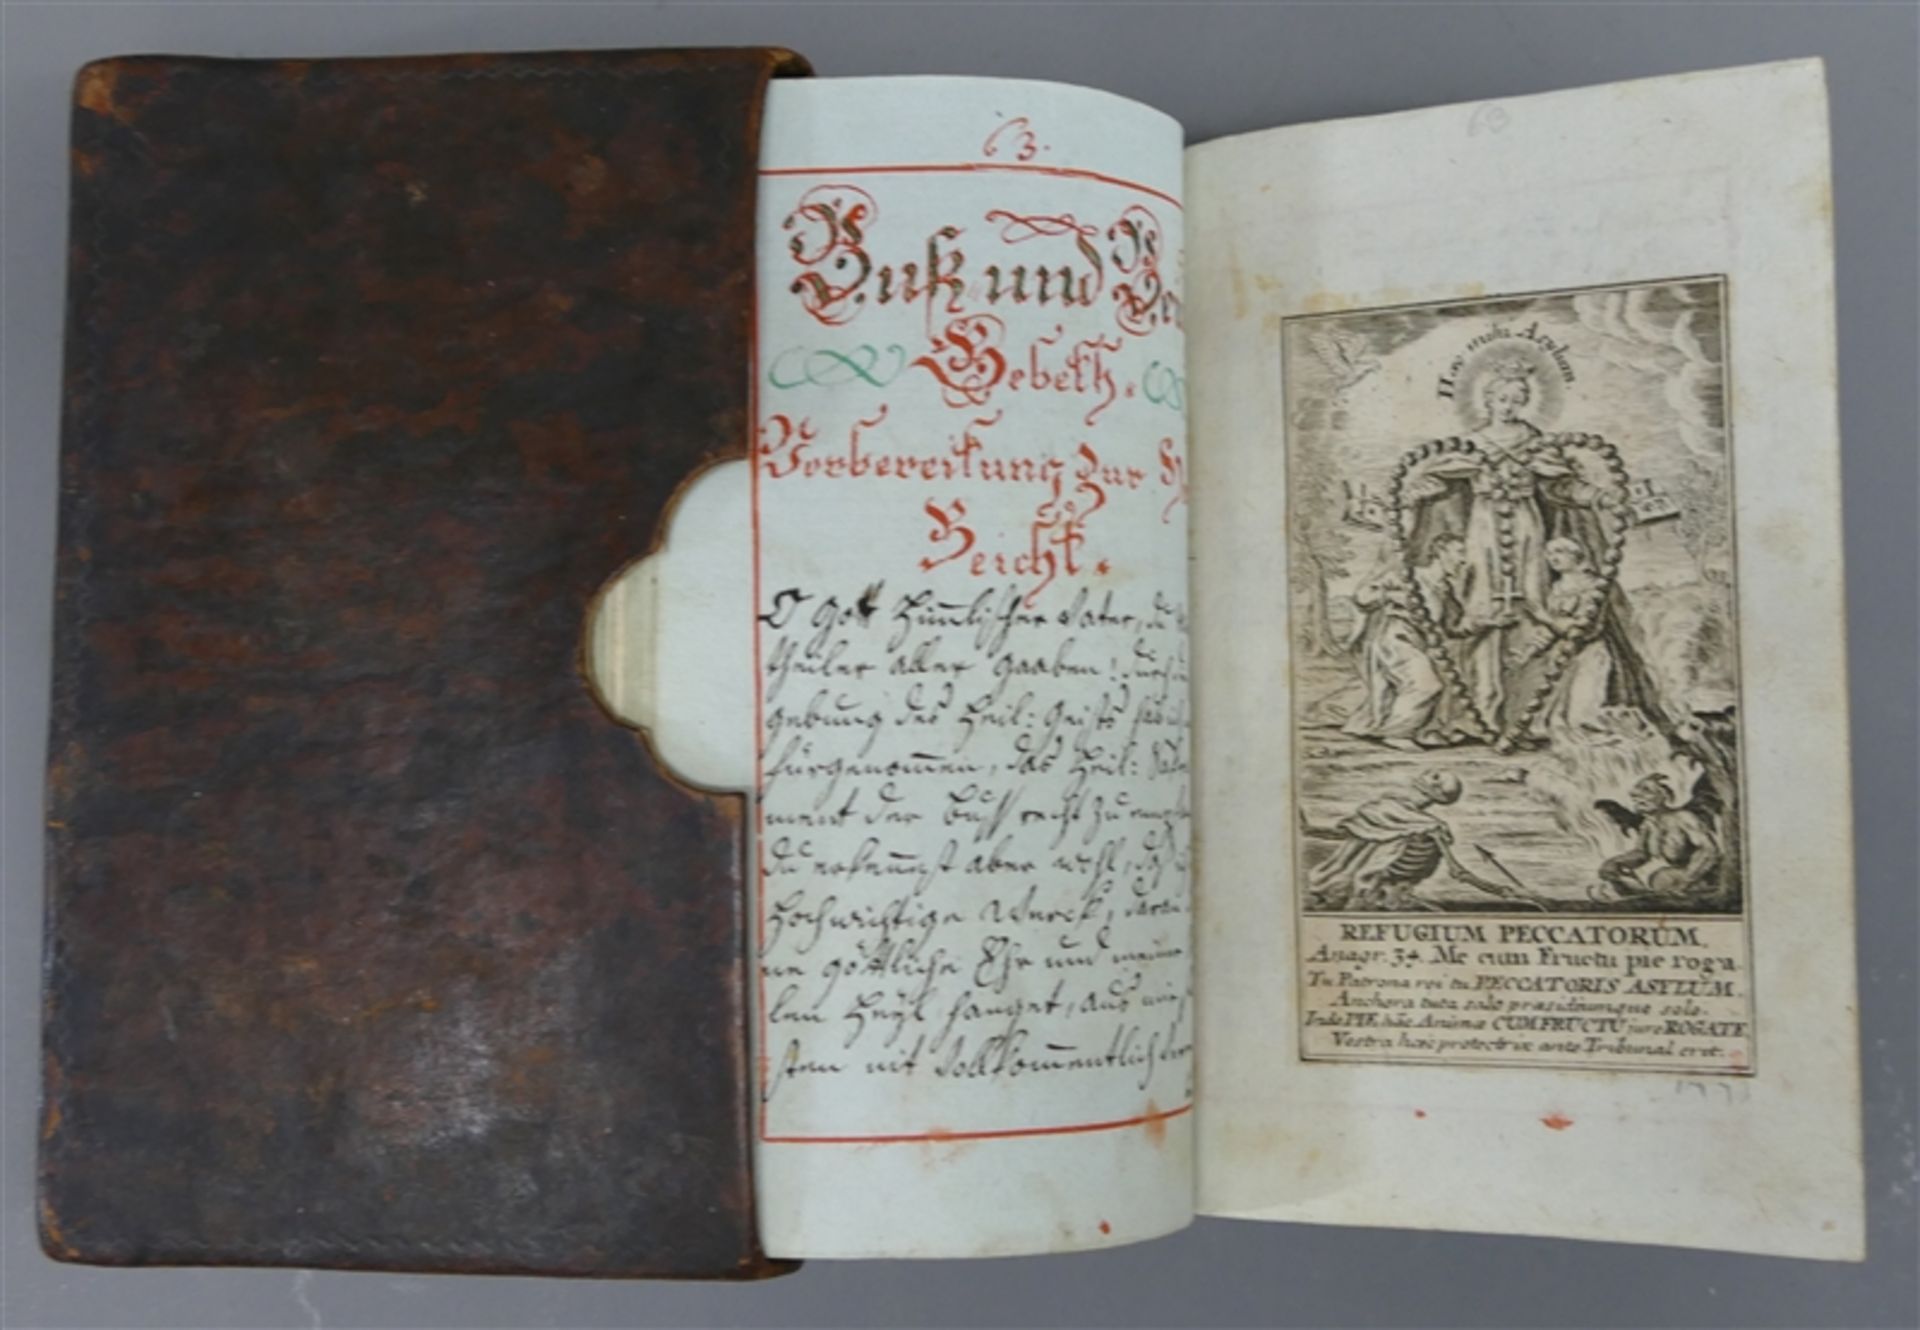 63.
Buß und
Gebett.
Vorbereitung zur H
Beicht.
O Gott Himlischer Vater, du
theiler aller gaaben! durch
gebung des Heil: Geists hab ich
fürgenom̅en, das Heil:
ment der Buss recht zu
du erken̅est aber wohl, das
Hochwichtige Werck, daran
ne göttliche Ehr und meine
len Heyl hanget, aus
sten mit Vollkom̅entlich
63
Hæc mihi Asylum
REFUGIUM PECCATORUM.
Anagr. 34. Me cum Fructu pie roga.
Tu Patrona rei tu PECCATORIS ASYLUM.
Anchora tuta salo præsidiumque solo.
Inde PIE hâc Animæ CUM FRUCTU jure ROGATE
Vestra hæc protectrix ante Tribunal erit.